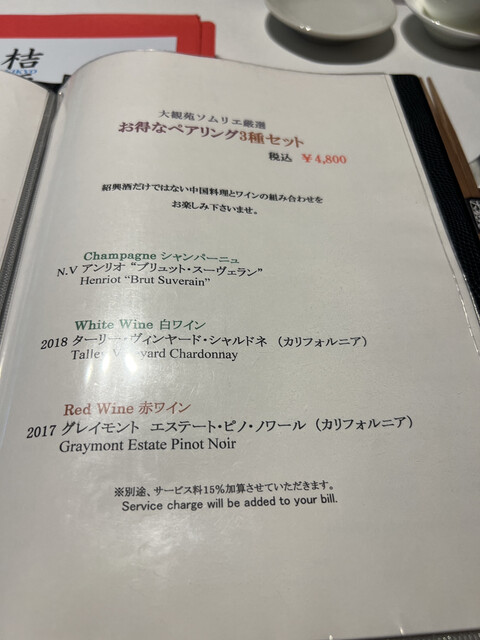 桔
大観苑ソムリエ厳選
お得なペアリング3種セット
税込 ¥4,800
紹興酒だけではない中国料理とワインの組み合わせを
お楽しみ下さいませ。
Champagne シャンパーニュ
N.V アンリオ “ブリュット・スーヴェラン”
Henriot “Brut Suverain”
White Wine 白ワイン
2018 ターリー・ヴィンヤード・シャルドネ （カリフォルニア）
Talley Vineyard Chardonnay
Red Wine 赤ワイン
2017 グレイモント エステート・ピノ・ノワール （カリフォルニア）
Graymont Estate Pinot Noir
※別途、サービス料15%加算させていただきます。
Service charge will be added to your bill.